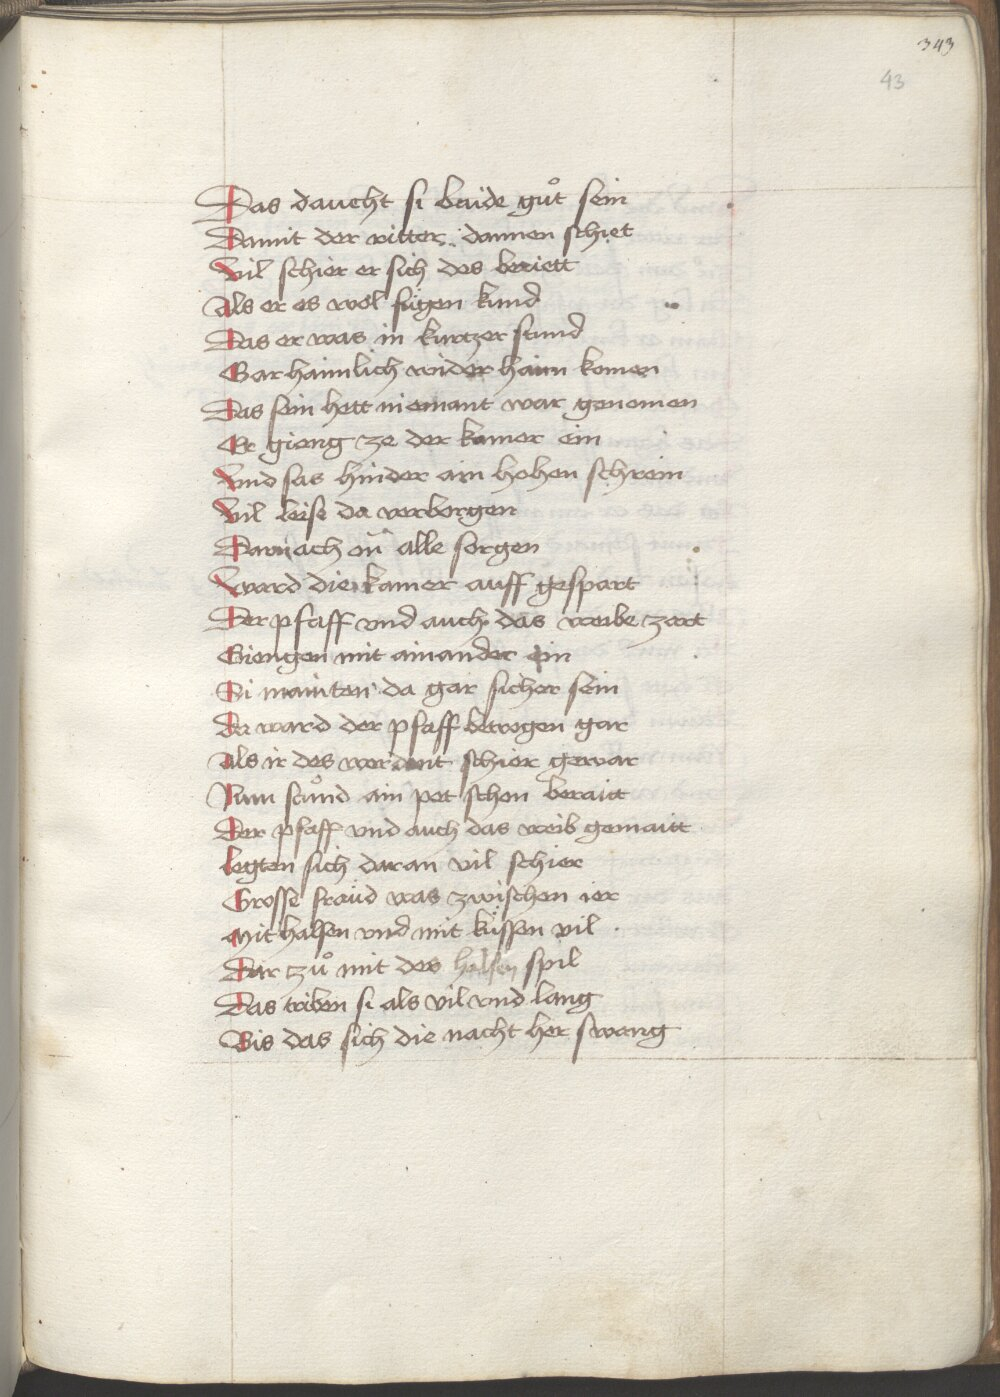 343
43
Das daucht si baide gůt sein
Damit der ritter dannen schiet
Vil schier er sich des beriett
Als er es wol fůgen kund
Das er was in kurtzer stund
Gar haimlich wider haim komen
Das sein hett niemant war genomen
Er gieng ze der kamer ein
Vnd sas hinder ain hohen schrein
Vil leise da verborgen
Darnach on alle sorgen
Ward die kamer auff gespart
Der pfaff vnd auch das weibe zart
Giengen mit ainander ein
Si mainten da gar sicher sein
Da ward der pfaff betrogen gar
Als ir des werdent schier gewar
Nun stůnd ain pet schon berait
Der pfaff vnd auch das weib gemaitt
legten sich daran vil schier
Grosse fraüd was zwischen ier
Mit halsen vnd mit küssen vil
Dar zů mit des halsen spil
Das triben si als vil vnd lang
Bis das sich die nacht her swang